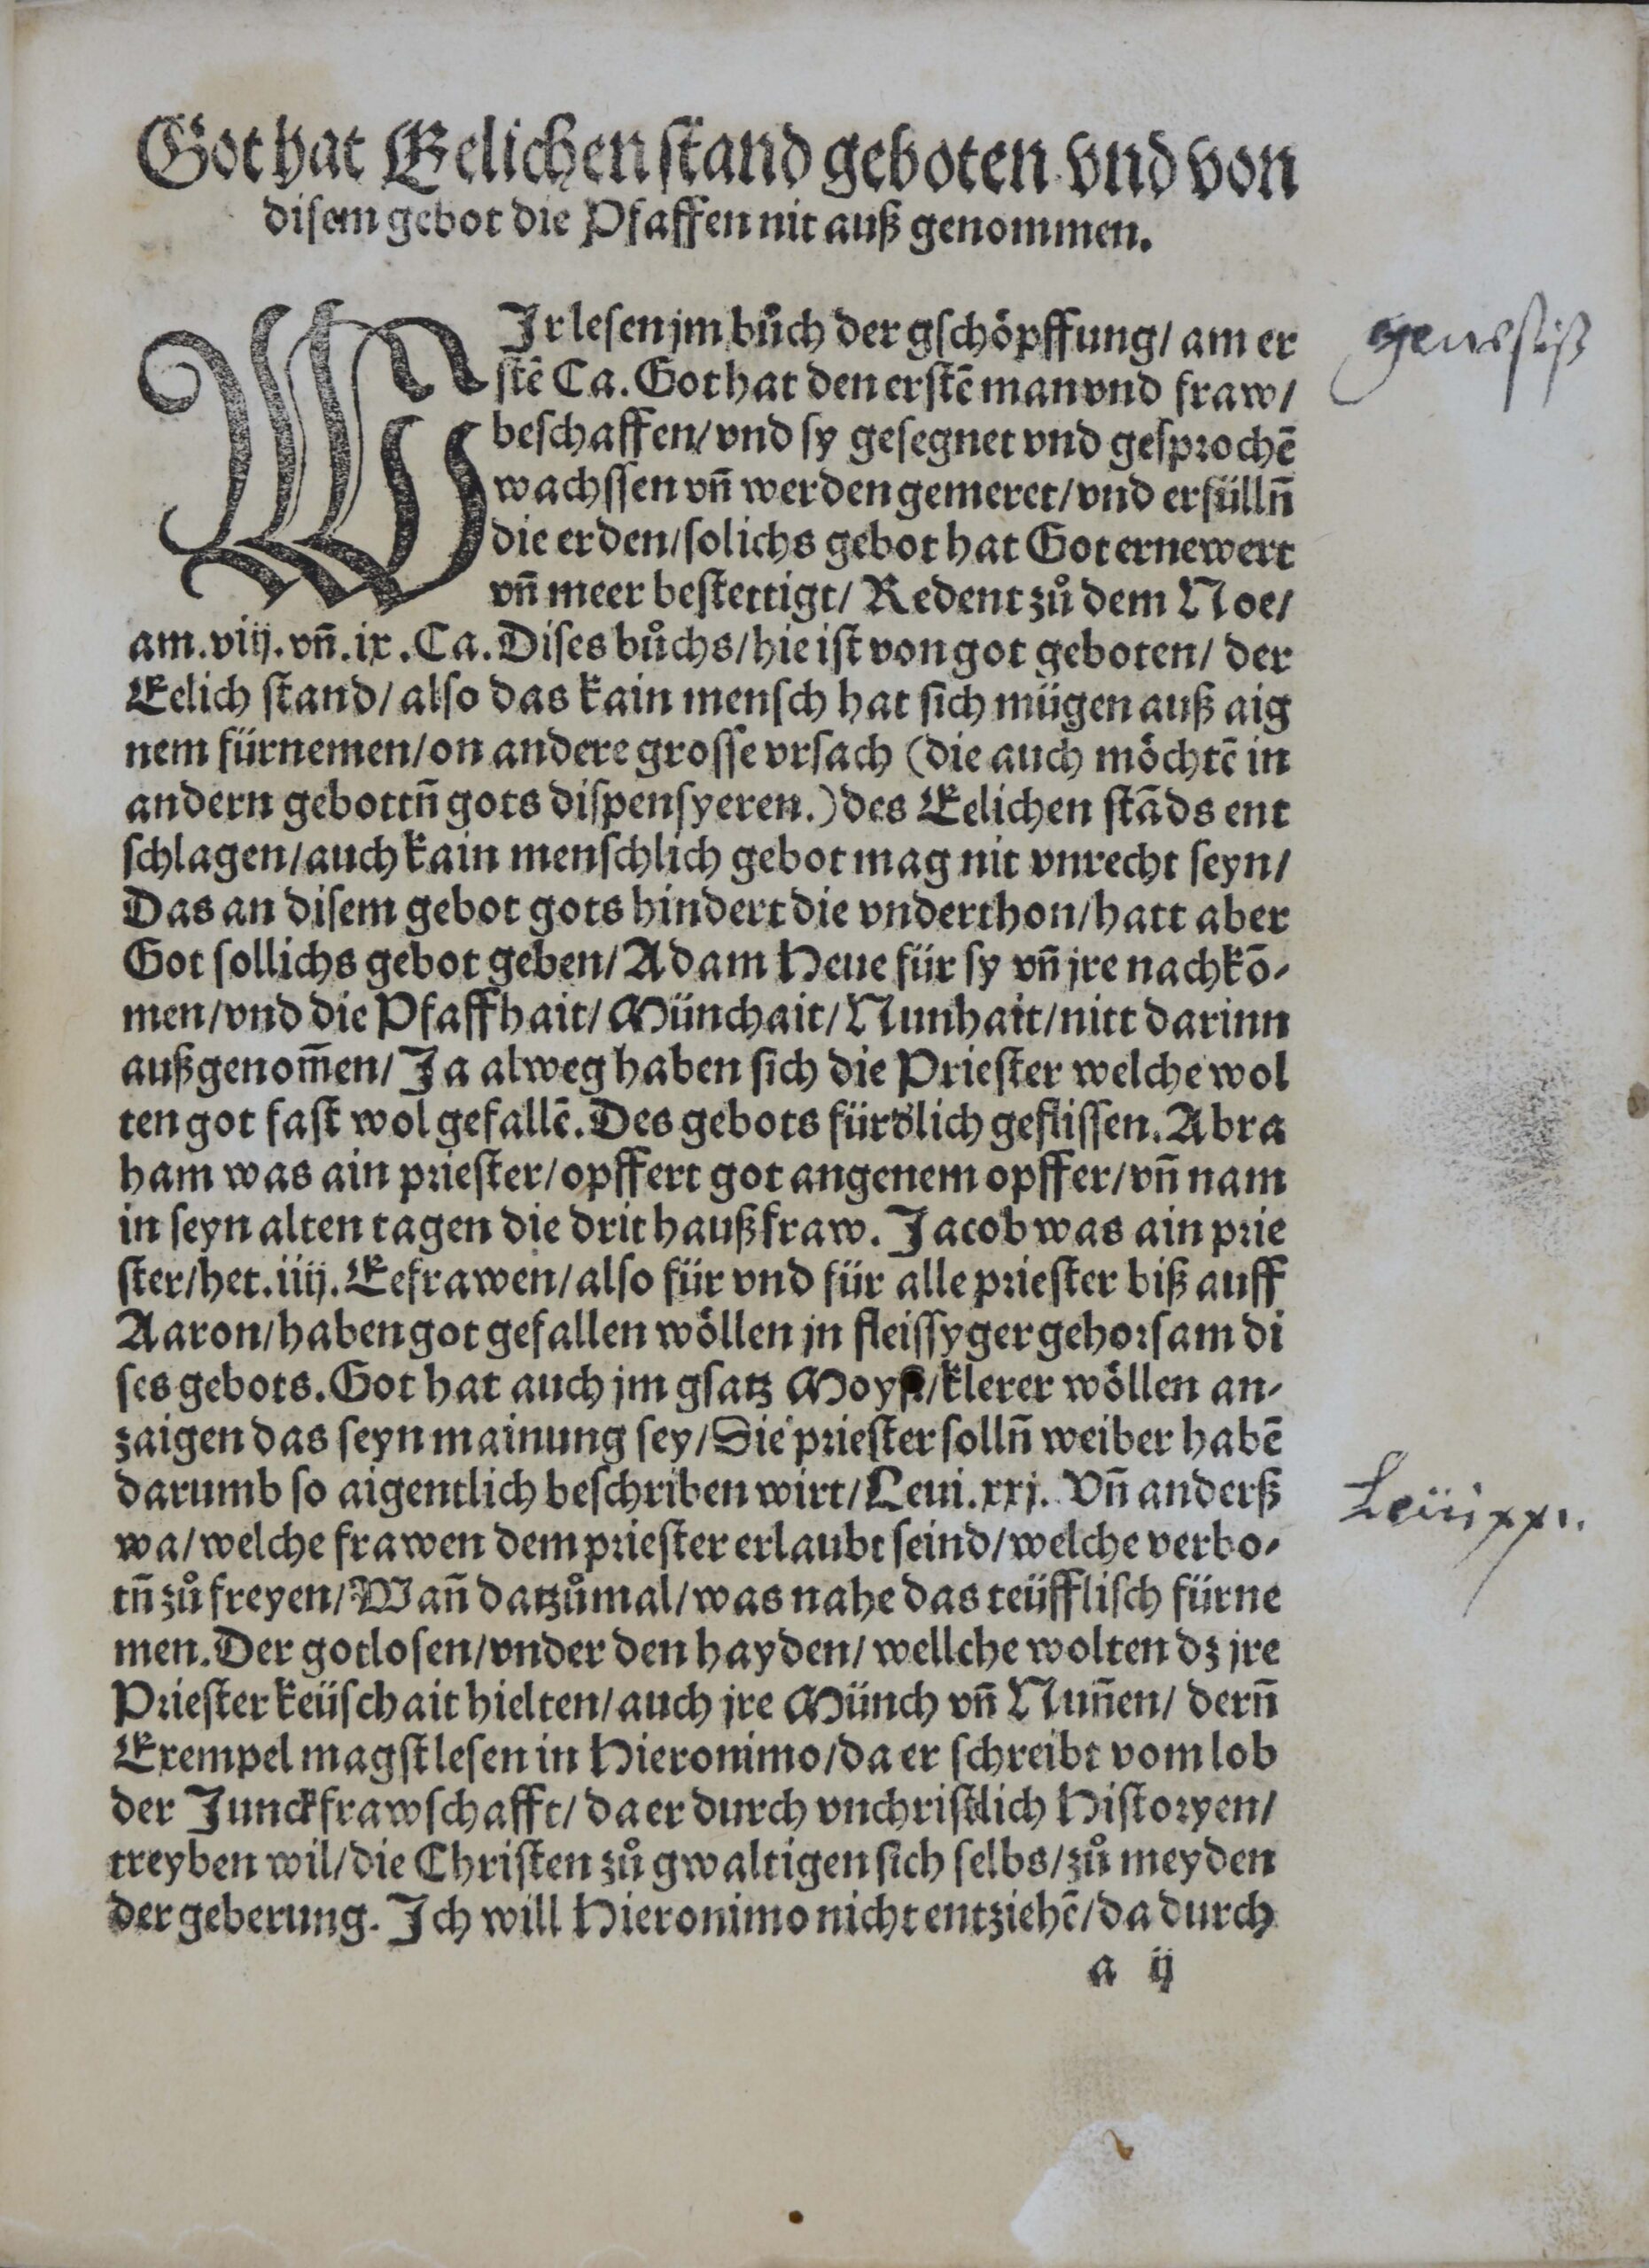 Got hat Eelichen stand geboten vnd von
disem gebot die Pfaffen nit auß genommen.
WIr lesen jm bůch der gschöpffung/ am er
stẽ Ca. Got hat den erstẽ man vnd fraw/
beschaffen/ vnd sy gesegnet vnd gesprochẽ
wachssen vñ werden gemeret/ vnd erfüllñ
die erden/ solichs gebot hat Got ernewert
vñ meer bestettigt/ Redent zů dem Noe/
am. viij. vñ. ix. Ca. Dises bůchs/ hie ist von got geboten/ der
Eelich stand/ also das kain mensch hat sich mügen auß aig
nem fürnemen/ on andere grosse vrsach (die auch möchtẽ in
andern gebottñ gots dispensyeren.) des Eelichen stãds ent
schlagen/ auch kain menschlich gebot mag nit vnrecht seyn/
Das an disem gebot gots hindert die vnderthon/ hatt aber
Got sollichs gebot geben/ Adam Heue für sy vñ jre nachkõ-
men/ vnd die Pfaffhait/ Münchait/ Nunhait/ nitt darinn
außgenom̃en/ Ja alweg haben sich die Priester welche wol
ten got fast wol gefallẽ. Des gebots fürdlich geflissen. Abra
ham was ain priester/ opffert got angenem opffer/ vñ nam
in seyn alten tagen die drit haußfraw. Jacob was ain prie
ster/ het. iiij. Eefrawen/ also für vnd für alle priester biß auff
Aaron/ haben got gefallen wöllen jn fleissyger gehorsam di
ses gebots. Got hat auch jm gsatz Moysi/ klerer wöllen an-
zaigen das seyn mainung sey/ Die priester sollñ weiber habẽ
darumb so aigentlich beschriben wirt/ Leui. xxj. Vñ anderß
wa/ welche frawen dem priester erlaubt seind/ welche verbo-
tñ zů freyen/ Wañ datzůmal/ was nahe das teüfflisch fürne
men. Der gotlosen/ vnder den hayden/ wellche wolten dz jre
Priester keüschait hielten/ auch jre Münch vñ Nuñen/ derñ
Exempel magst lesen in Hieronimo/ da er schreibt vom lob
der Junckfrawschafft/ da er durch vnchristlich Historyen/
treyben wil/ die Christen zů gwaltigen sich selbs/ zů meyden
der geberung. Ich will Hieronimo nicht entziehẽ/ da durch
a ij
genesiß
Leüi xxi.